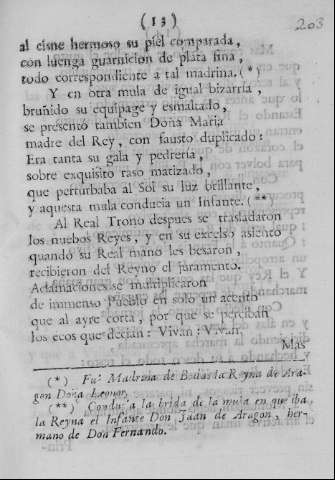 (13)
203
al cisne hermoso su piel comparada,
con luenga guarnicion de plata fina,
todo correspondiente a tal madrina. (*)
Y en otra mula de igual bizarria,
bruñido su equipage y esmaltado,
se presentó tambien Doña Maria
madre del Rey, con fausto duplicado:
Era tanta su gala y pedrería,
sobre exquisito raso matizado,
que perturbaba al Sol su luz brillante,
y aquesta mula conducia un Infante. (**)
Al Real Trono despues se trasladaron
los nuebos Reyes, y en su excelso asiento
quando su Real mano les besaron,
recibieron del Reyno el juramento.
Aclamaciones se multiplicaron
de immenso Pueblo en solo un acento
que al ayre corta, por que se perciban
los ecos que decian: Vivan; Vivan.
Mas
(*) Fué Madrina de Bodas la Reyna de Ara-
gon Doña Leonor.
(**) Conduxo a la brida de la mula en que iba
la Reyna el Infante Don Juan de Aragon, her-
mano de Don Fernando.